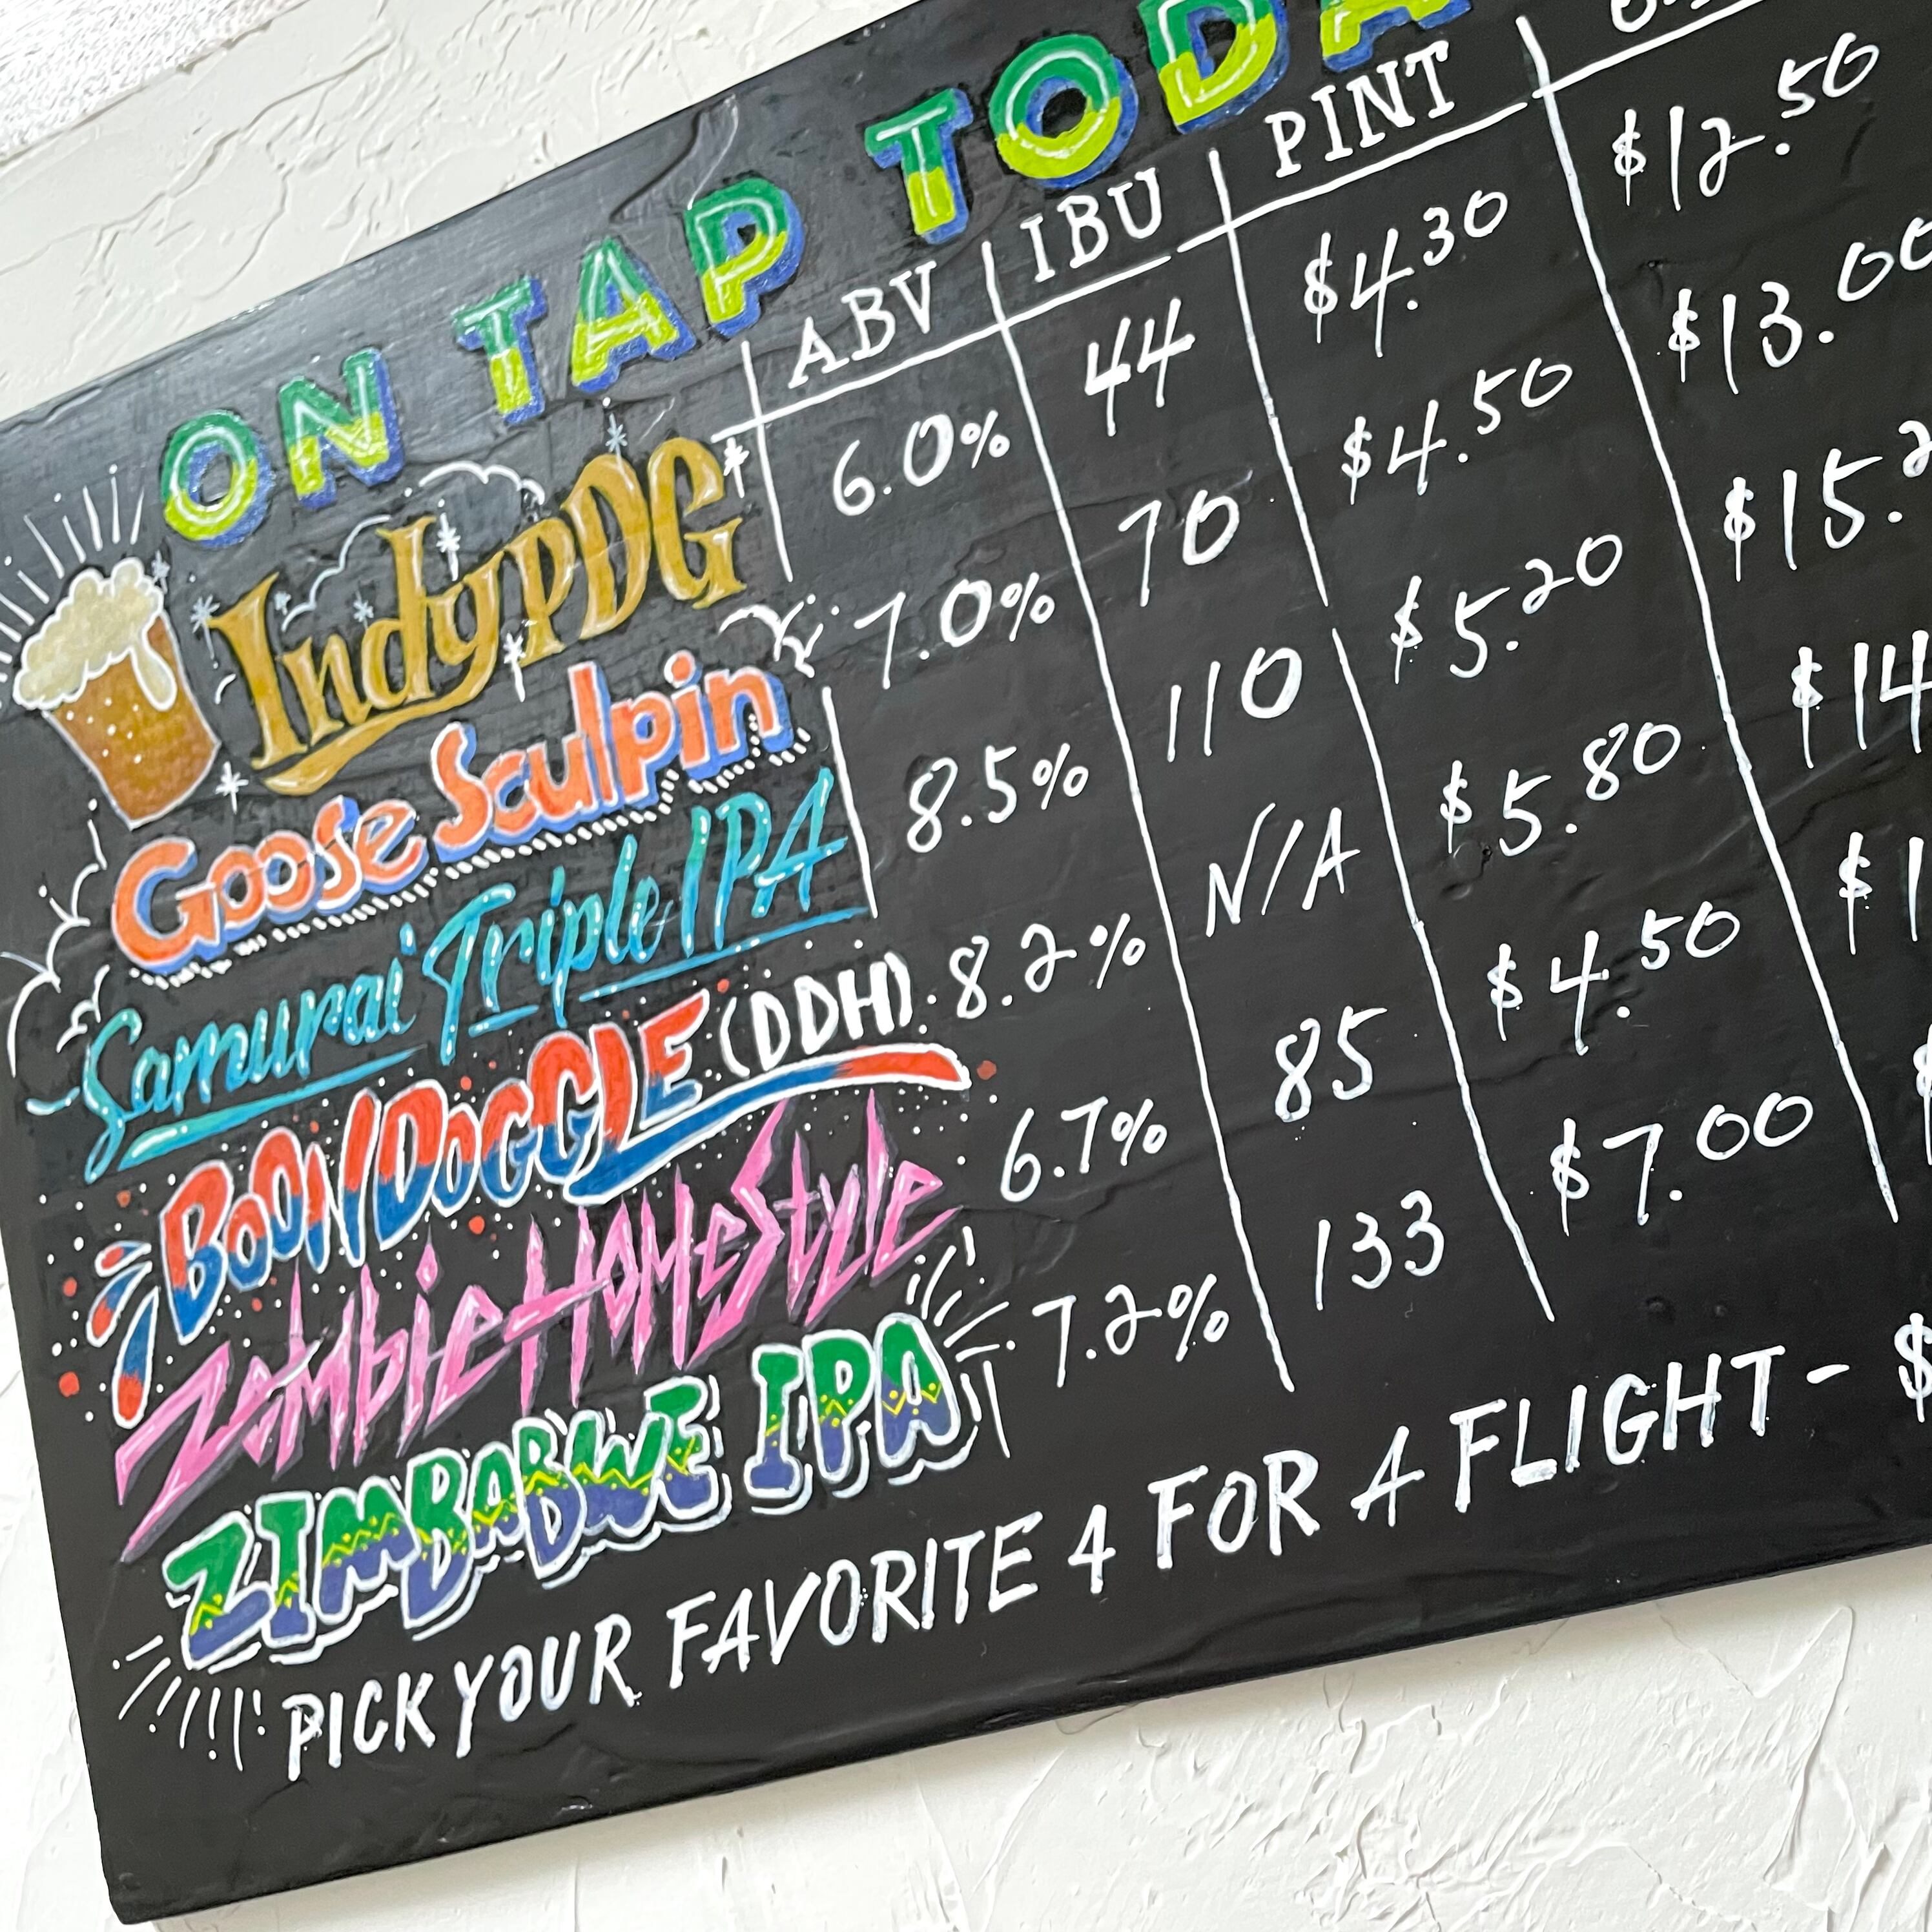 ON TAP TODA
ABV IBU PINT
IndyPDG 6.0% 44 $4.30 $12.50
Goose Sculpin 7.0% 70 $4.50 $13.00
Samurai Triple IPA 8.5% 110 $5.20 $15.2
BOONDOGGLE (DDH) 8.2% N/A $5.80 $14
ZOMbie HOMeStyle 6.7% 85 $4.50 $1
ZIMBABWE IPA 7.2% 133 $7.00 $
PICK YOUR FAVORITE 4 FOR A FLIGHT - $